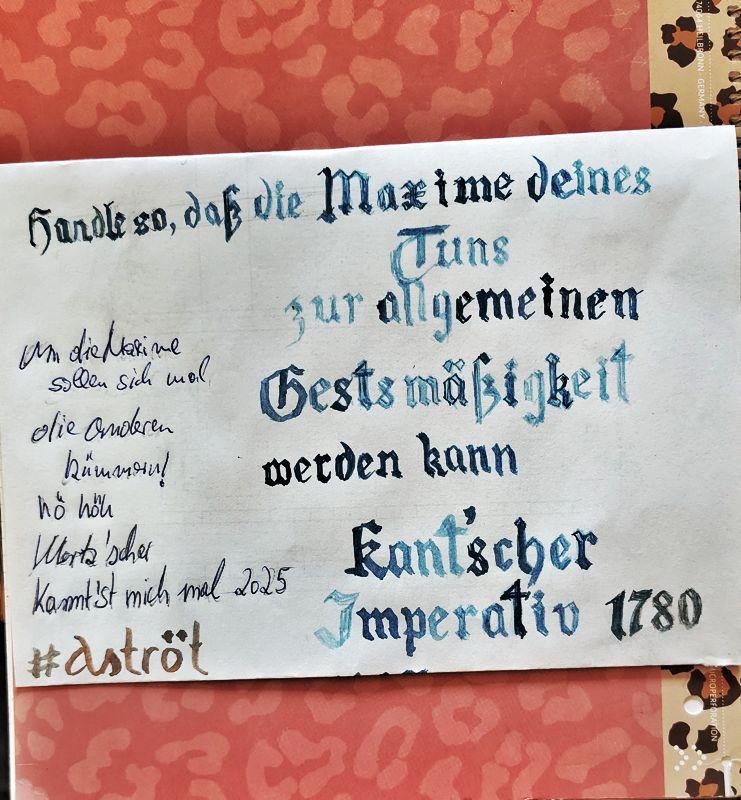 Handle so, daß die Maxime deines
Tuns
zur allgemeinen
Gestsmäßigkeit
werden kann
Kant'scher
Imperativ 1780
Um die Maxime
sollen sich mal
die anderen
kümmern!
hö höh
Mertz'scher
Kannt'st mich mal 2025
#aströt
HEILBRONN · GERMANY
ROPERFORATION